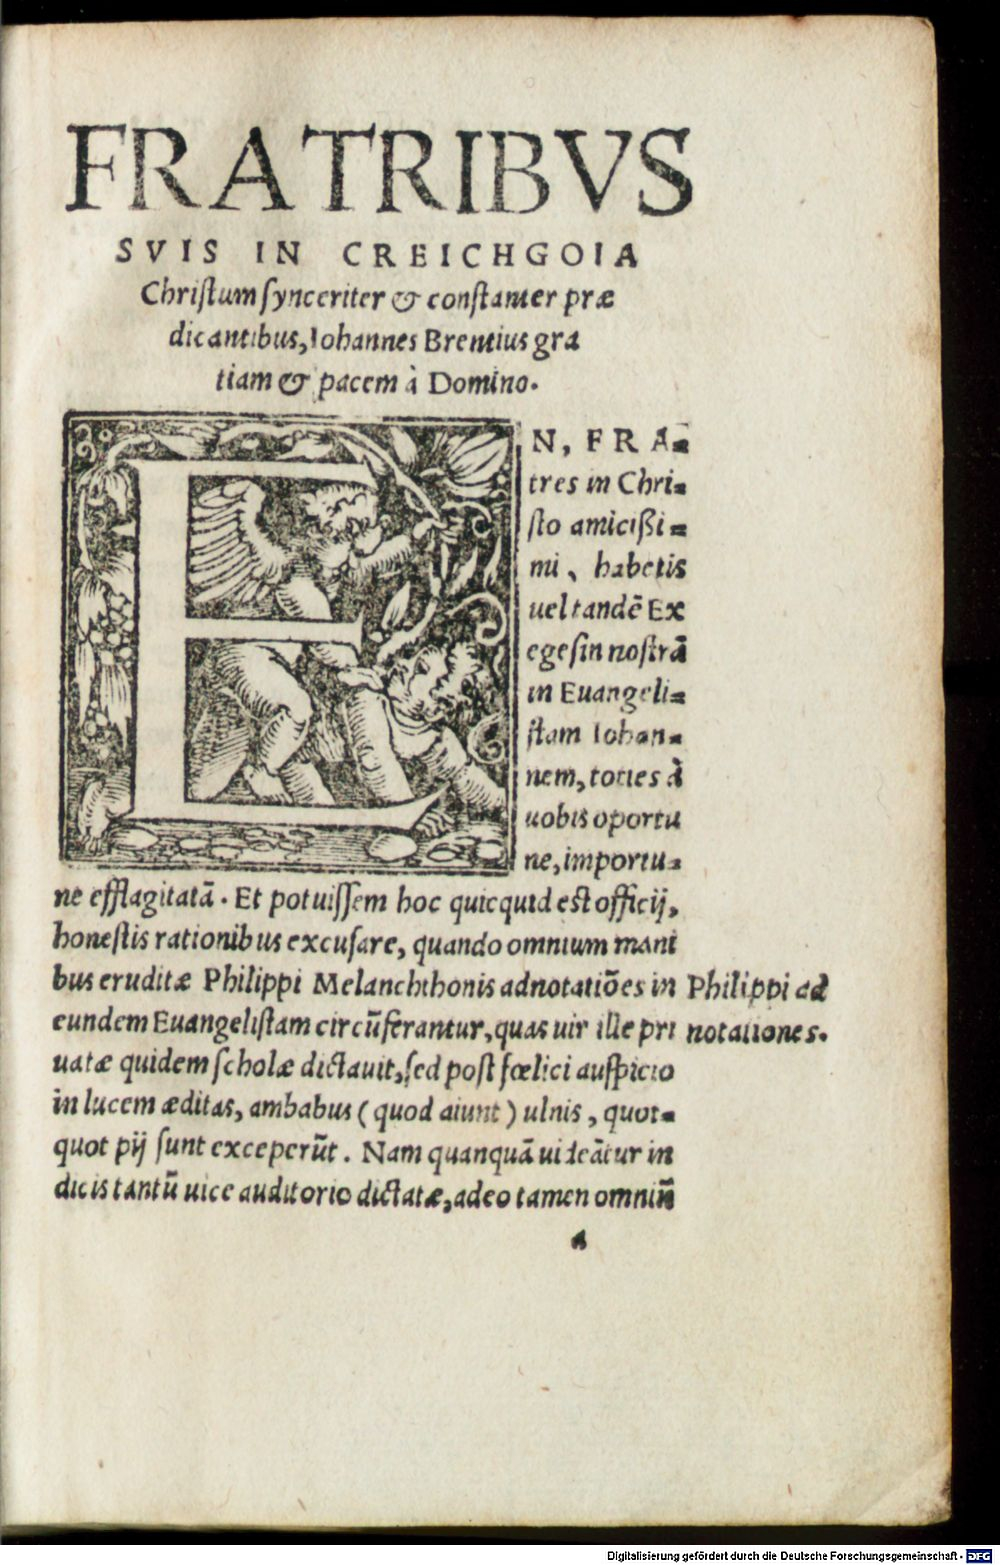 FRATRIBVS
SVIS IN CREICHGOIA
Christum synceriter & constanter præ
dicantibus, Iohannes Brentius gra
tiam & pacem à Domino.
EN, FRA-
tres in Chri-
sto amicißi-
mi, habetis
uel tandẽ Ex
egesin nostrã
in Euangeli-
stam Iohan-
nem, toties à
uobis oportu
ne, importu-
ne efflagitatã. Et potuissem hoc quicquid est officij,
honestis rationibus excusare, quando omnium mani
bus eruditæ Philippi Melanchthonis adnotatiões in
Philippi ad
eundem Euangelistam circũferantur, quas uir ille pri
notationes.
uatæ quidem scholæ dictauit, sed post fœlici auspicio
in lucem æditas, ambabus (quod aiunt) ulnis, quot-
quot pij sunt exceperũt. Nam quanquã uideãtur in
dicis tantũ uice auditorio dictatæ, adeo tamen omniũ
A
Digitalisierung gefördert durch die Deutsche Forschungsgemeinschaft - DFG